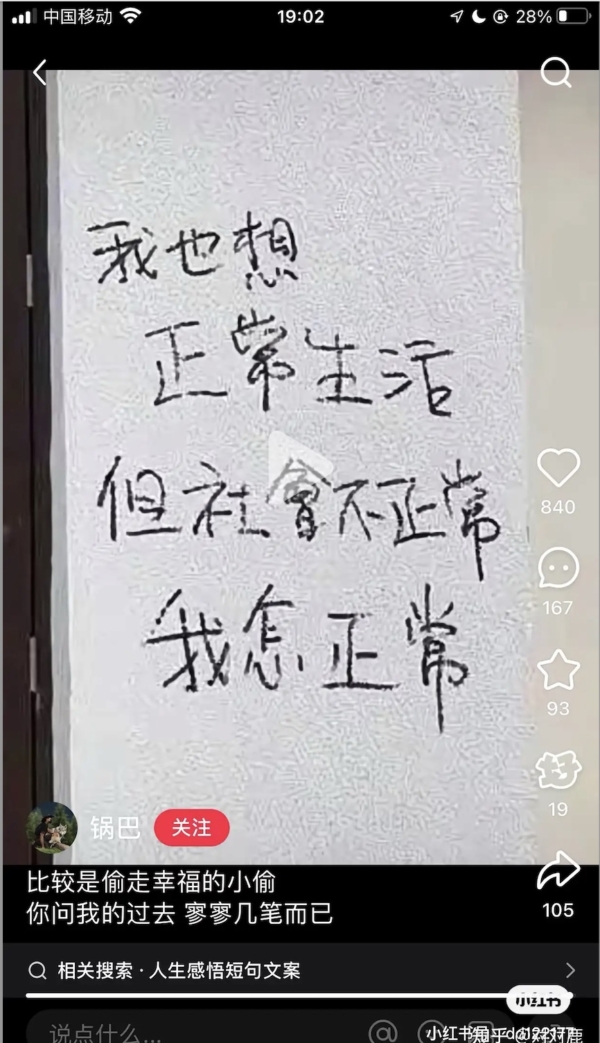 中国移动
19:02
28%
我也想
正常生活
但社會不正常
我怎正常
840
167
93
19
锅巴
关注
105
比较是偷走幸福的小偷
你问我的过去 寥寥几笔而已
相关搜索 · 人生感悟短句文案
小红书
说点什么...